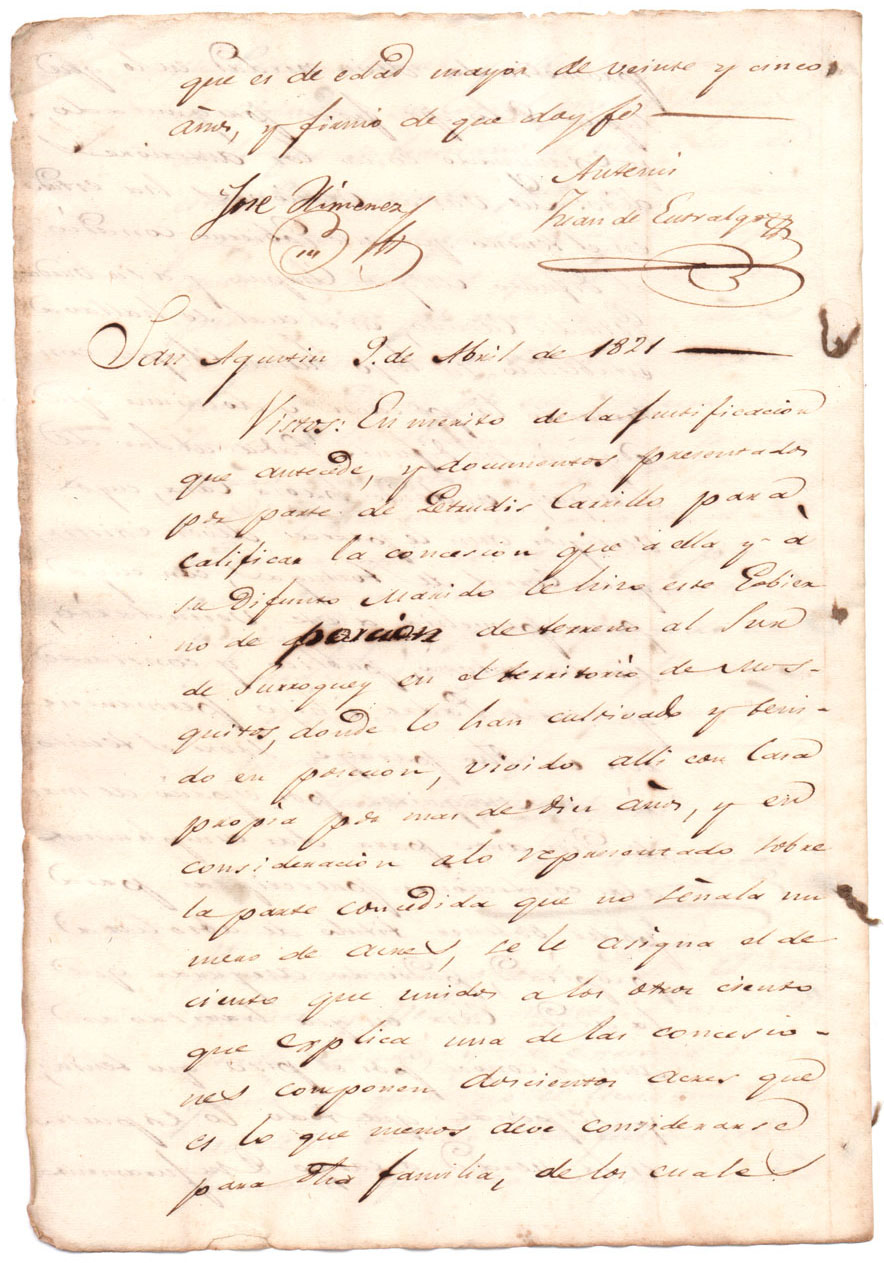 que es de edad mayor de veinte y cinco
años, y firmó de que doy fé
Jose Ximenez
Antemi
Juan de Entralgo
San Agustin 9. de Abril de 1821
Vistos: En merito de la justificacion
que antecede, y documentos presentados
por parte de Getrudis Carrillo para
calificar la concesion que á ella y á
su Difunto Marido le hizo este Gobier
no de porcion de terreno al Sur
de Surroquey en el territorio de Mos-
quitos, donde lo han cultivado y teni-
do en posecion, vivido alli con Casa
propia por mas de dies años, y en
consideracion alo representado sobre
la parte concedida que no señala nu
mero de acres, se le asigna el de
ciento que unidos a los otros ciento
que explica una de las concesio-
nes componen doscientos acres que
es lo que menos deve considerarse
para dha familia, de los cuales